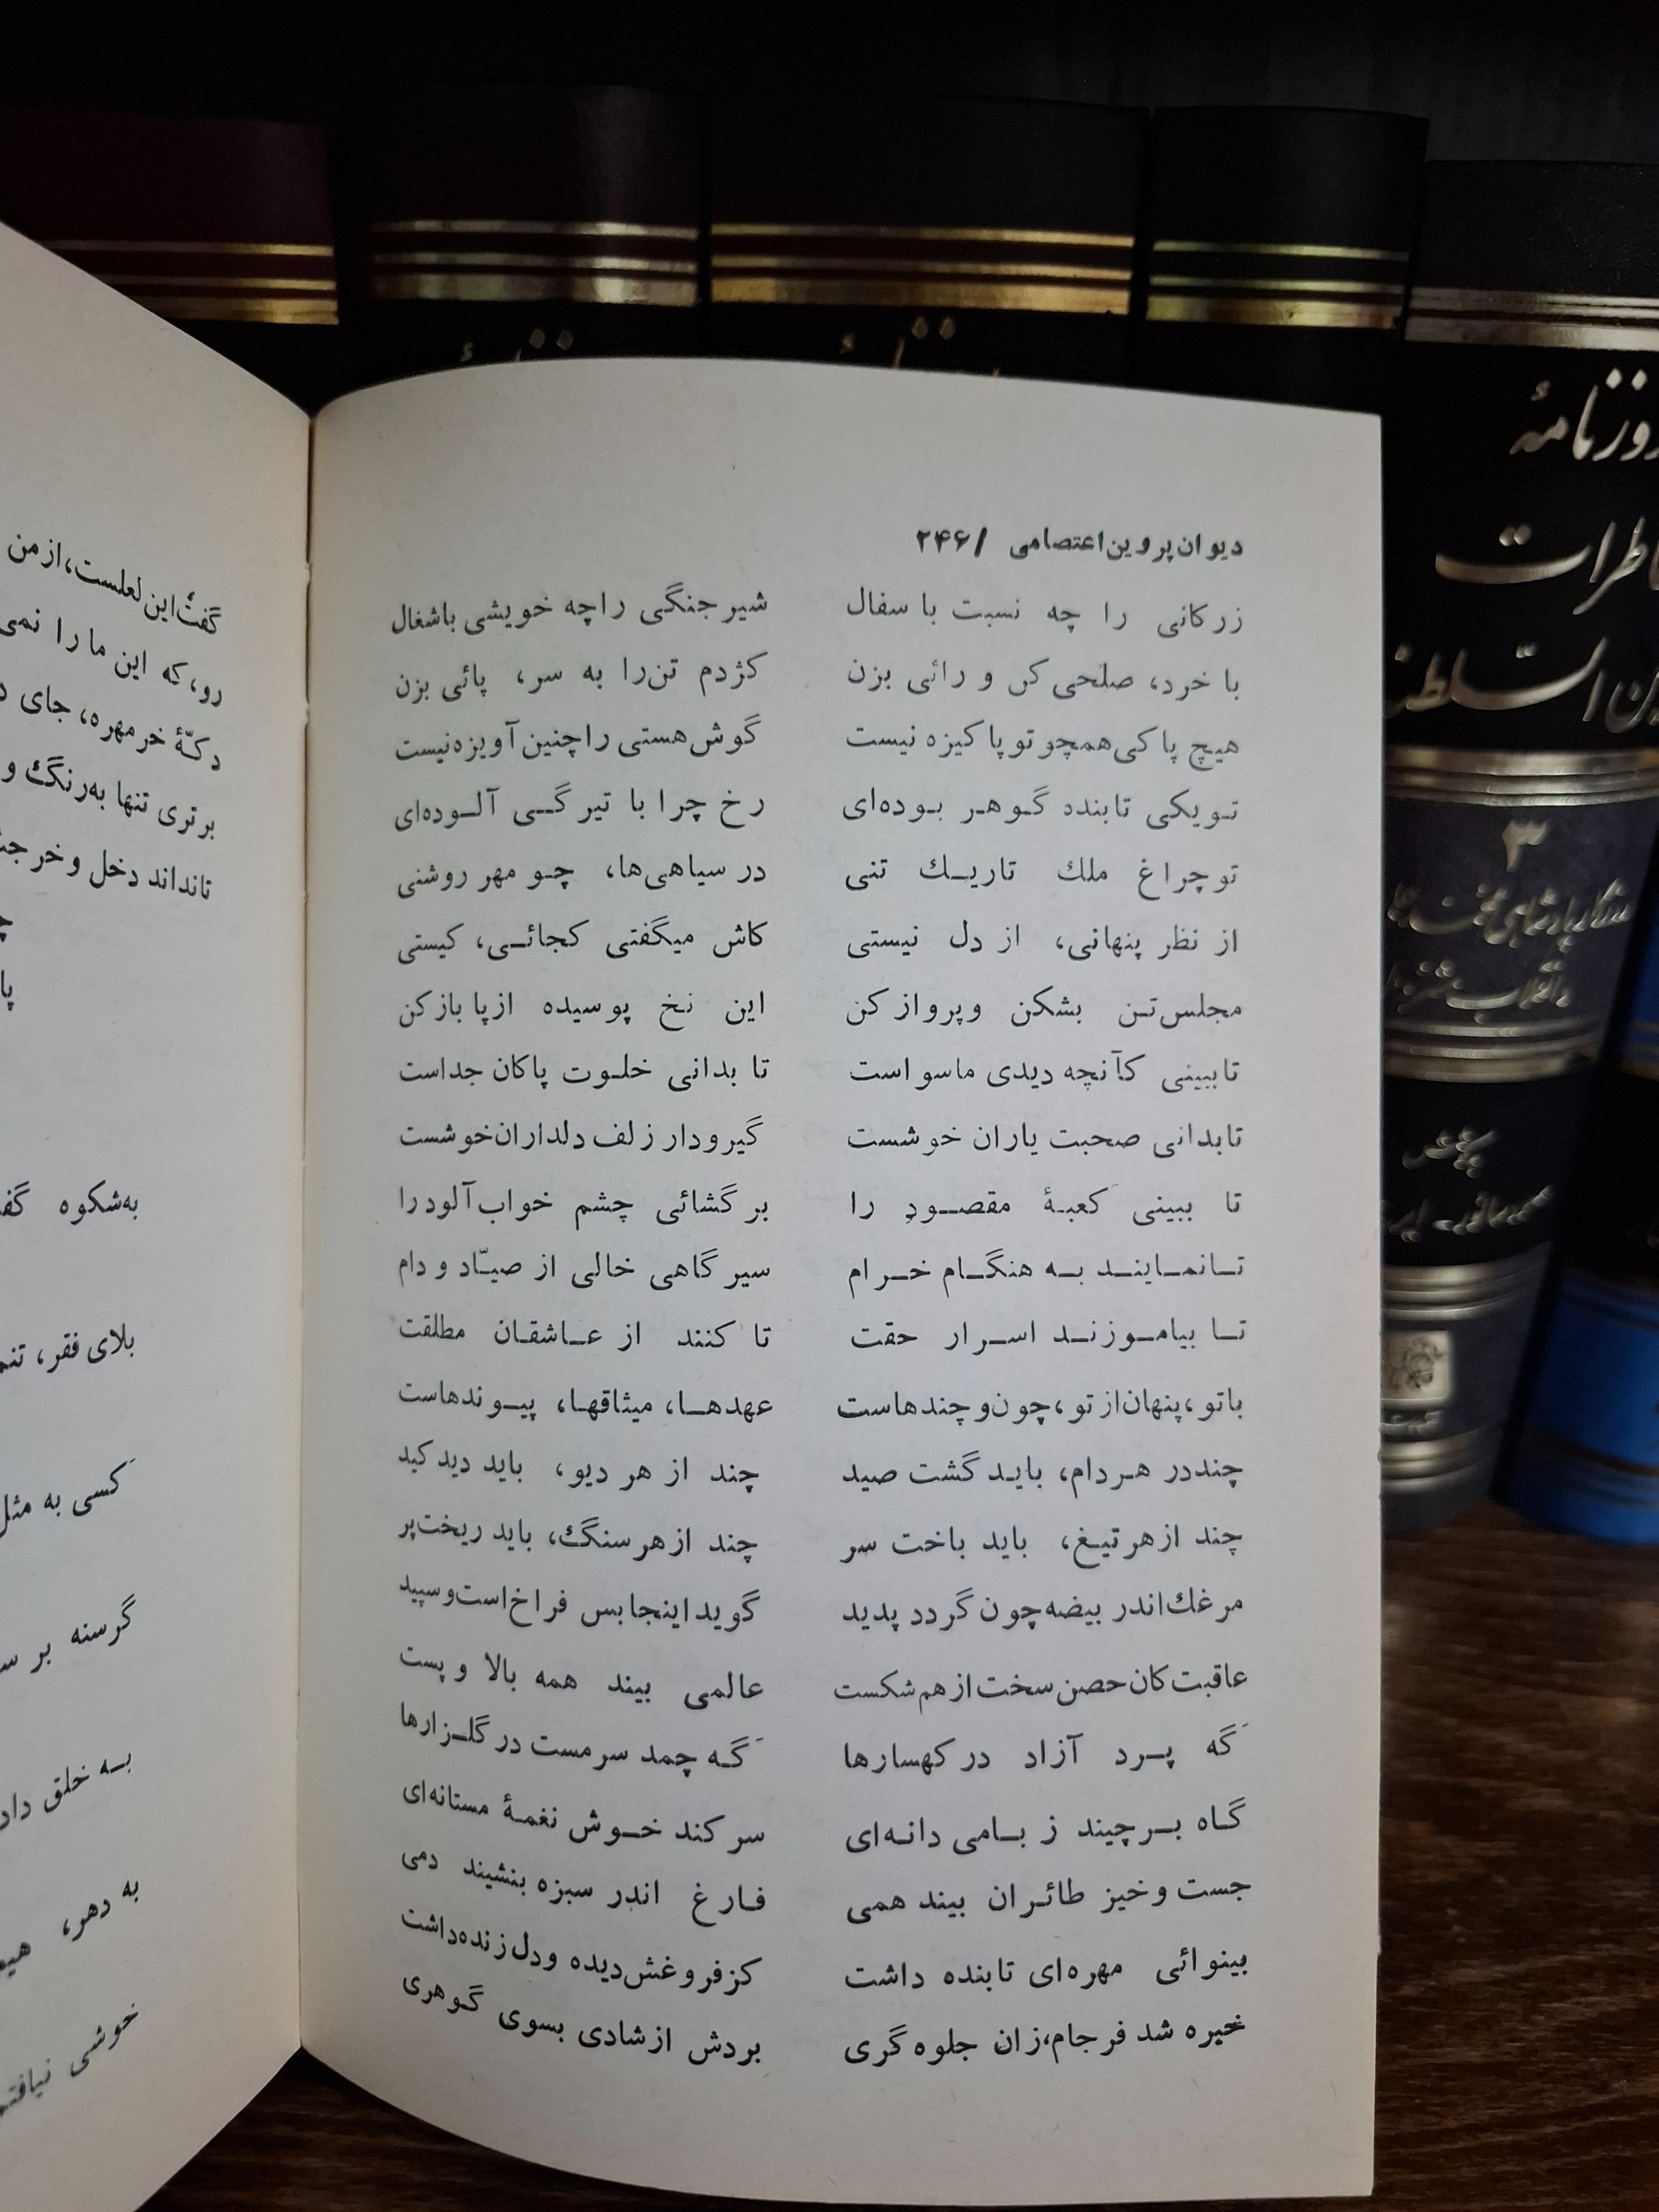 دیوان پروین اعتصامی /۲۴۶
زر کانی را چه نسبت با سفال شیر جنگی را چه خویشی با شغال
با خرد، صلحی کن و رائی بزن کژدم تن را به سر، پائی بزن
هیچ پاکی همچو تو پاکیزه نیست گوش هستی را چنین آویزه نیست
تو یکی تابنده گوهر بوده‌ای رخ چرا با تیرگی آلوده‌ای
تو چراغ ملك تاریك تنی در سیاهی‌ها، چو مهر روشنی
از نظر پنهانی، از دل نیستی کاش میگفتی کجائی، کیستی
مجلس تن بشکن و پرواز کن این نخ پوسیده از پا باز کن
تا ببینی کآنچه دیدی ماسواست تا بدانی خلوت پاکان جداست
تا بدانی صحبت یاران خوشست گیرودار زلف دلداران خوشست
تا ببینی کعبهٔ مقصود را بر گشائی چشم خواب آلود را
تا نمایند به هنگام خرام سیر گاهی خالی از صیّاد و دام
تا بیاموزند اسرار حقت تا کنند از عاشقان مطلقت
با تو، پنهان از تو، چون و چندهاست عهدها، میثاقها، پیوندهاست
چند در هر دام، باید گشت صید چند از هر دیو، باید دید کید
چند از هر تیغ، باید باخت سر چند از هر سنگ، باید ریخت پر
مرغك اندر بیضه چون گردد پدید گوید اینجا بس فراخ است و سپید
عاقبت کان حصن سخت از هم شکست عالمی بیند همه بالا و پست
َگه پرد آزاد در کهسارها َگه چمد سرمست در گلزارها
گاه برچیند ز بامی دانه‌ای سر کند خوش نغمهٔ مستانه‌ای
جست و خیز طائران بیند همی فارغ اندر سبزه بنشیند دمی
بینوائی مهره‌ای تابنده داشت کز فروغش دیده و دل زنده داشت
خیره شد فرجام، زان جلوه گری بردش از شادی بسوی گوهری
گفت این لعلست، از من
رو، که این ما را نمی
دکّهٔ خر مهره، جای
برتری تنها به رنگ و
تانداند دخل و خرجش
به شکوه
بلای فقر،
کسی به مثل
گرسنه بر
به خلق
به دهر،
خوشی
روزنامهٔ
۳